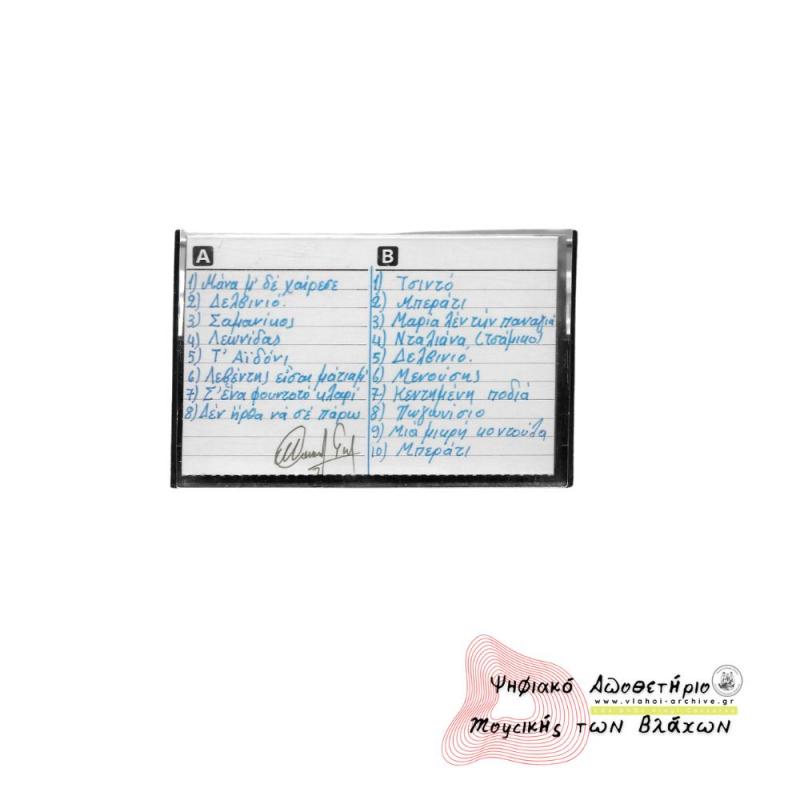 A
1) Μάνα μ' δέ χαίρεσε
2) Δελβινιό.
3) Σαμανίκος
4) Λεωνίδας
5) Τ' Αϊδόνι
6) Λεβέντης είσαι μάτιαμ'
7) Σ'ένα φουντοτό κλαρί
8) Δέν ήρθα νά σέ πάρω
B
1) Τσιντό
2) Μπεράτι
3) Μαρία λέν τήν παναγιά
4) Νταλιάνα (τσάμικο)
5) Δελβινιό.
6) Μενούσης
7) Κεντημένη ποδιά
8) Πωγωνίσιο
9) Μιά μικρή κοντούλα
10) Μπεράτι
Ψηφιακό Αποθετήριο
www.vlahoi-archive.gr
Μουσικής των Βλάχων